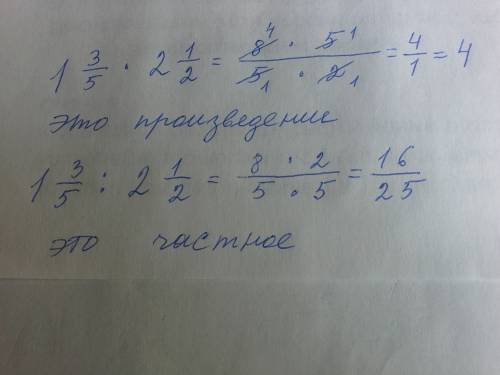 1 3/5 · 2 1/2 = 8⁴ · 5¹ / 5₁ · 2₁ = 4/1 = 4
это произведение
1 3/5 : 2 1/2 = 8 · 2 / 5 · 5 = 16/25
это частное